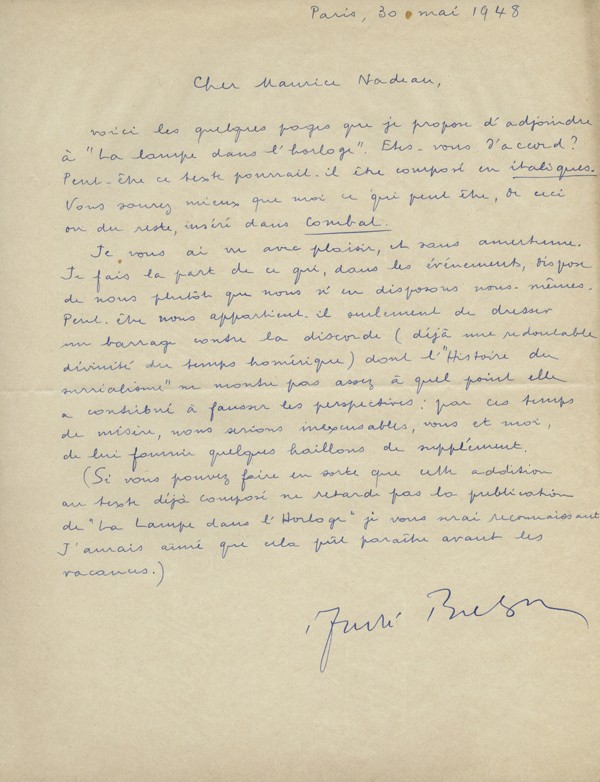 Paris, 30 mai 1948
Cher Maurice Nadeau,
voici les quelques pages que je propose d'adjoindre
à "La lampe dans l'horloge". Etes-vous d'accord?
Peut-être ce texte pourrait-il être composé en italiques.
Vous saurez mieux que moi ce qui peut être, de ceci
ou du reste, inséré dans Combat.
Je vous ai vu avec plaisir, et sans amertume.
Je fais la part de ce qui, dans les événements, dispose
de nous plutôt que nous n'en disposons nous-mêmes.
Peut-être nous appartient-il seulement de dresser
un barrage contre la discorde (déjà une redoutable
divinité du temps homérique) dont l'"Histoire du
surréalisme" ne montre pas assez à quel point elle
a contribué à fausser les perspectives: par ces temps
de misère, nous serions inexcusables, vous et moi,
de lui fournir quelques haillons de supplément.
(Si vous pouvez faire en sorte que cette addition
au texte déjà composé ne retarde pas la publication
de "La Lampe dans l'Horloge" je vous serai reconnaissant
J'aurais aimé que cela pût paraître avant les
vacances.)
André Breton